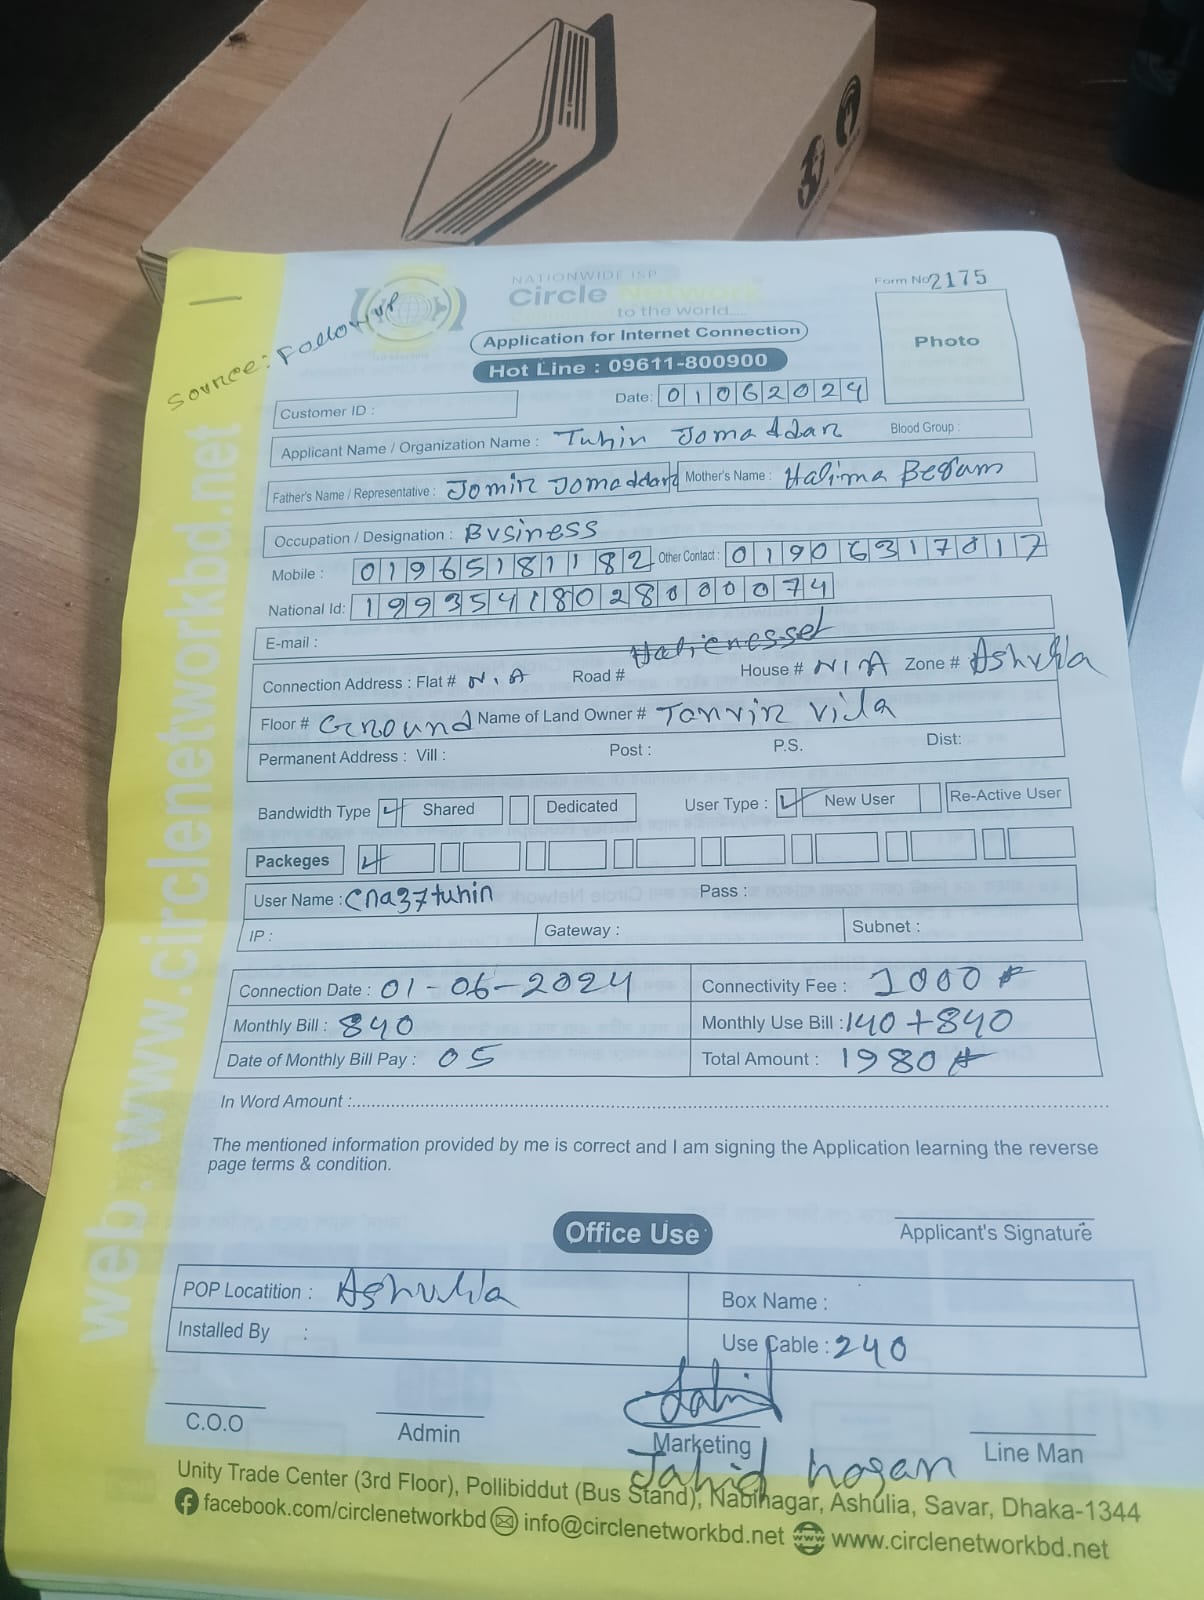 Source: Followup
NATIONWIDE ISP
Circle Network
to the world....
Application for Internet Connection
Hot Line : 09611-800900
Form No 2175
Photo
Customer ID :
Date: 01062024
Applicant Name / Organization Name : Tuhin Jomaddar Blood Group :
Father's Name / Representative : Jomir Jomaddar Mother's Name : Halima Begam
Occupation / Designation : Business
Mobile : 01965181182 Other Contact : 01906317817
National Id: 19935418028000074
E-mail :
Connection Address : Flat # N.A Road # House # N/A Zone # Ashulia
Floor # Ground Name of Land Owner # Tanvir Vila
Permanent Address : Vill : Post : P.S. Dist:
Bandwidth Type Shared Dedicated User Type : New User Re-Active User
Packeges
User Name : cna37tuhin Pass :
IP : Gateway : Subnet :
Connection Date : 01-06-2024 Connectivity Fee : 1000
Monthly Bill : 840 Monthly Use Bill : 140+840
Date of Monthly Bill Pay : 05 Total Amount : 1980
In Word Amount :
The mentioned information provided by me is correct and I am signing the Application learning the reverse
page terms & condition.
Applicant's Signature
Office Use
POP Locatition : Ashulia Box Name :
Installed By : Use Cable : 240
Jahid
C.O.O Admin Marketing Line Man
Jahid hasan
Unity Trade Center (3rd Floor), Pollibiddut (Bus Stand), Nabinagar, Ashulia, Savar, Dhaka-1344
facebook.com/circlenetworkbd info@circlenetworkbd.net www.circlenetworkbd.net
web : www.circlenetworkbd.net